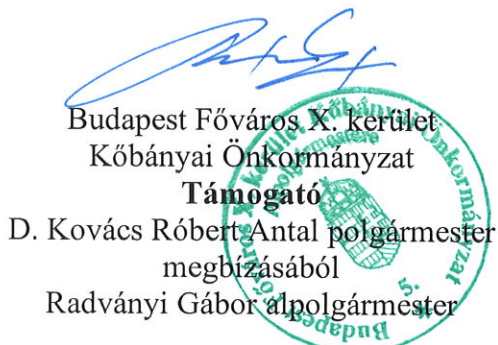 Budapest Főváros X. kerület
Kőbányai Önkormányzat
Támogató
D. Kovács Róbert Antal polgármester
megbízásából
Radványi Gábor alpolgármester
Budapest Főváros X. kerület Kőbányai Önkormányzat
alpolgármestere
5.